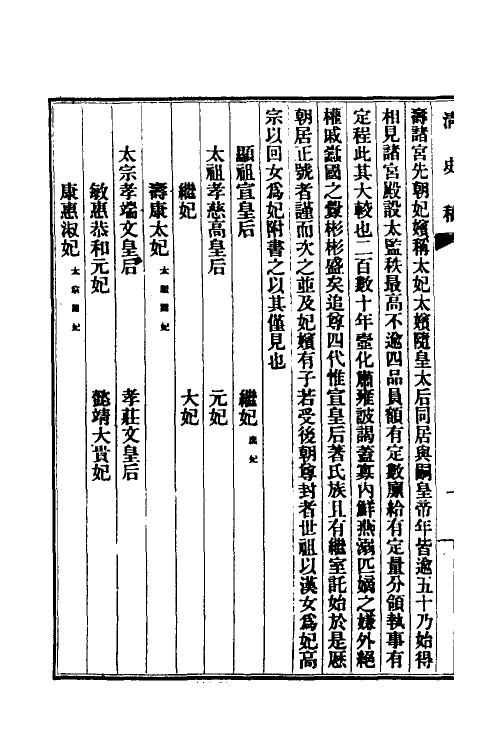 清史稿
一
壽諸宮先朝妃嬪稱太妃太嬪隨皇太后同居與嗣皇帝年皆逾五十乃始得
相見諸宮殿設太監秩最高不逾四品員額有定數廩給有定量分領執事有
定程此其大較也二百數十年壼化肅雍詖謁蓋寡內鮮燕溺匹嫡之嫌外絕
權戚蠹國之釁彬彬盛矣追尊四代惟宣皇后著氏族且有繼室託始於是厯
朝居正號者謹而次之並及妃嬪有子若受後朝尊封者世祖以漢女爲妃高
宗以回女爲妃附書之以其僅見也
顯祖宣皇后 繼妃 庶妃
太祖孝慈高皇后 元妃
繼妃 大妃
壽康太妃 太祖諸妃
太宗孝端文皇后 孝莊文皇后
敏惠恭和元妃 懿靖大貴妃
康惠淑妃 太宗諸妃